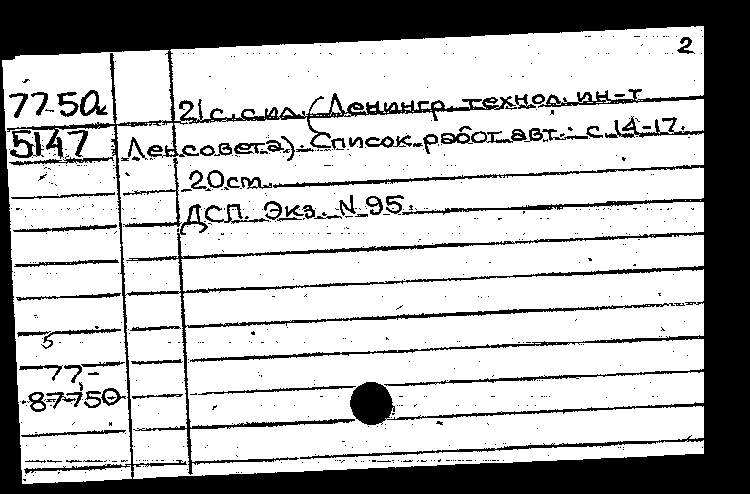 2
77-50к 21 с. с ил. (Ленингр. технол. ин-т
5147 Ленсовета). Список работ авт.: с. 14-17.
20 см.
ДСП. Экз. N 95.
5
77-
87750